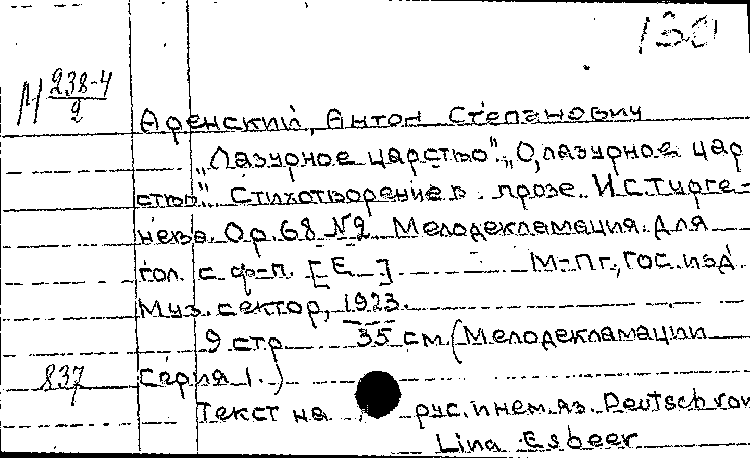 130
М 238-4
2
Аренский, Антон Степанович
"Лазурное царство". "О, лазурное цар
ство". Стихотворение в прозе И.С.Турге-
нева. Op.68 №2 Мелодекламация для
гол. с ф-п. [E ] М-Пг., Гос.изд.
Муз. сектор, 1923.
9 стр 35 см (Мелодекламации
837 серия 1.)
Текст на рус. и нем. яз. Deutsch von
Lina Esbeer